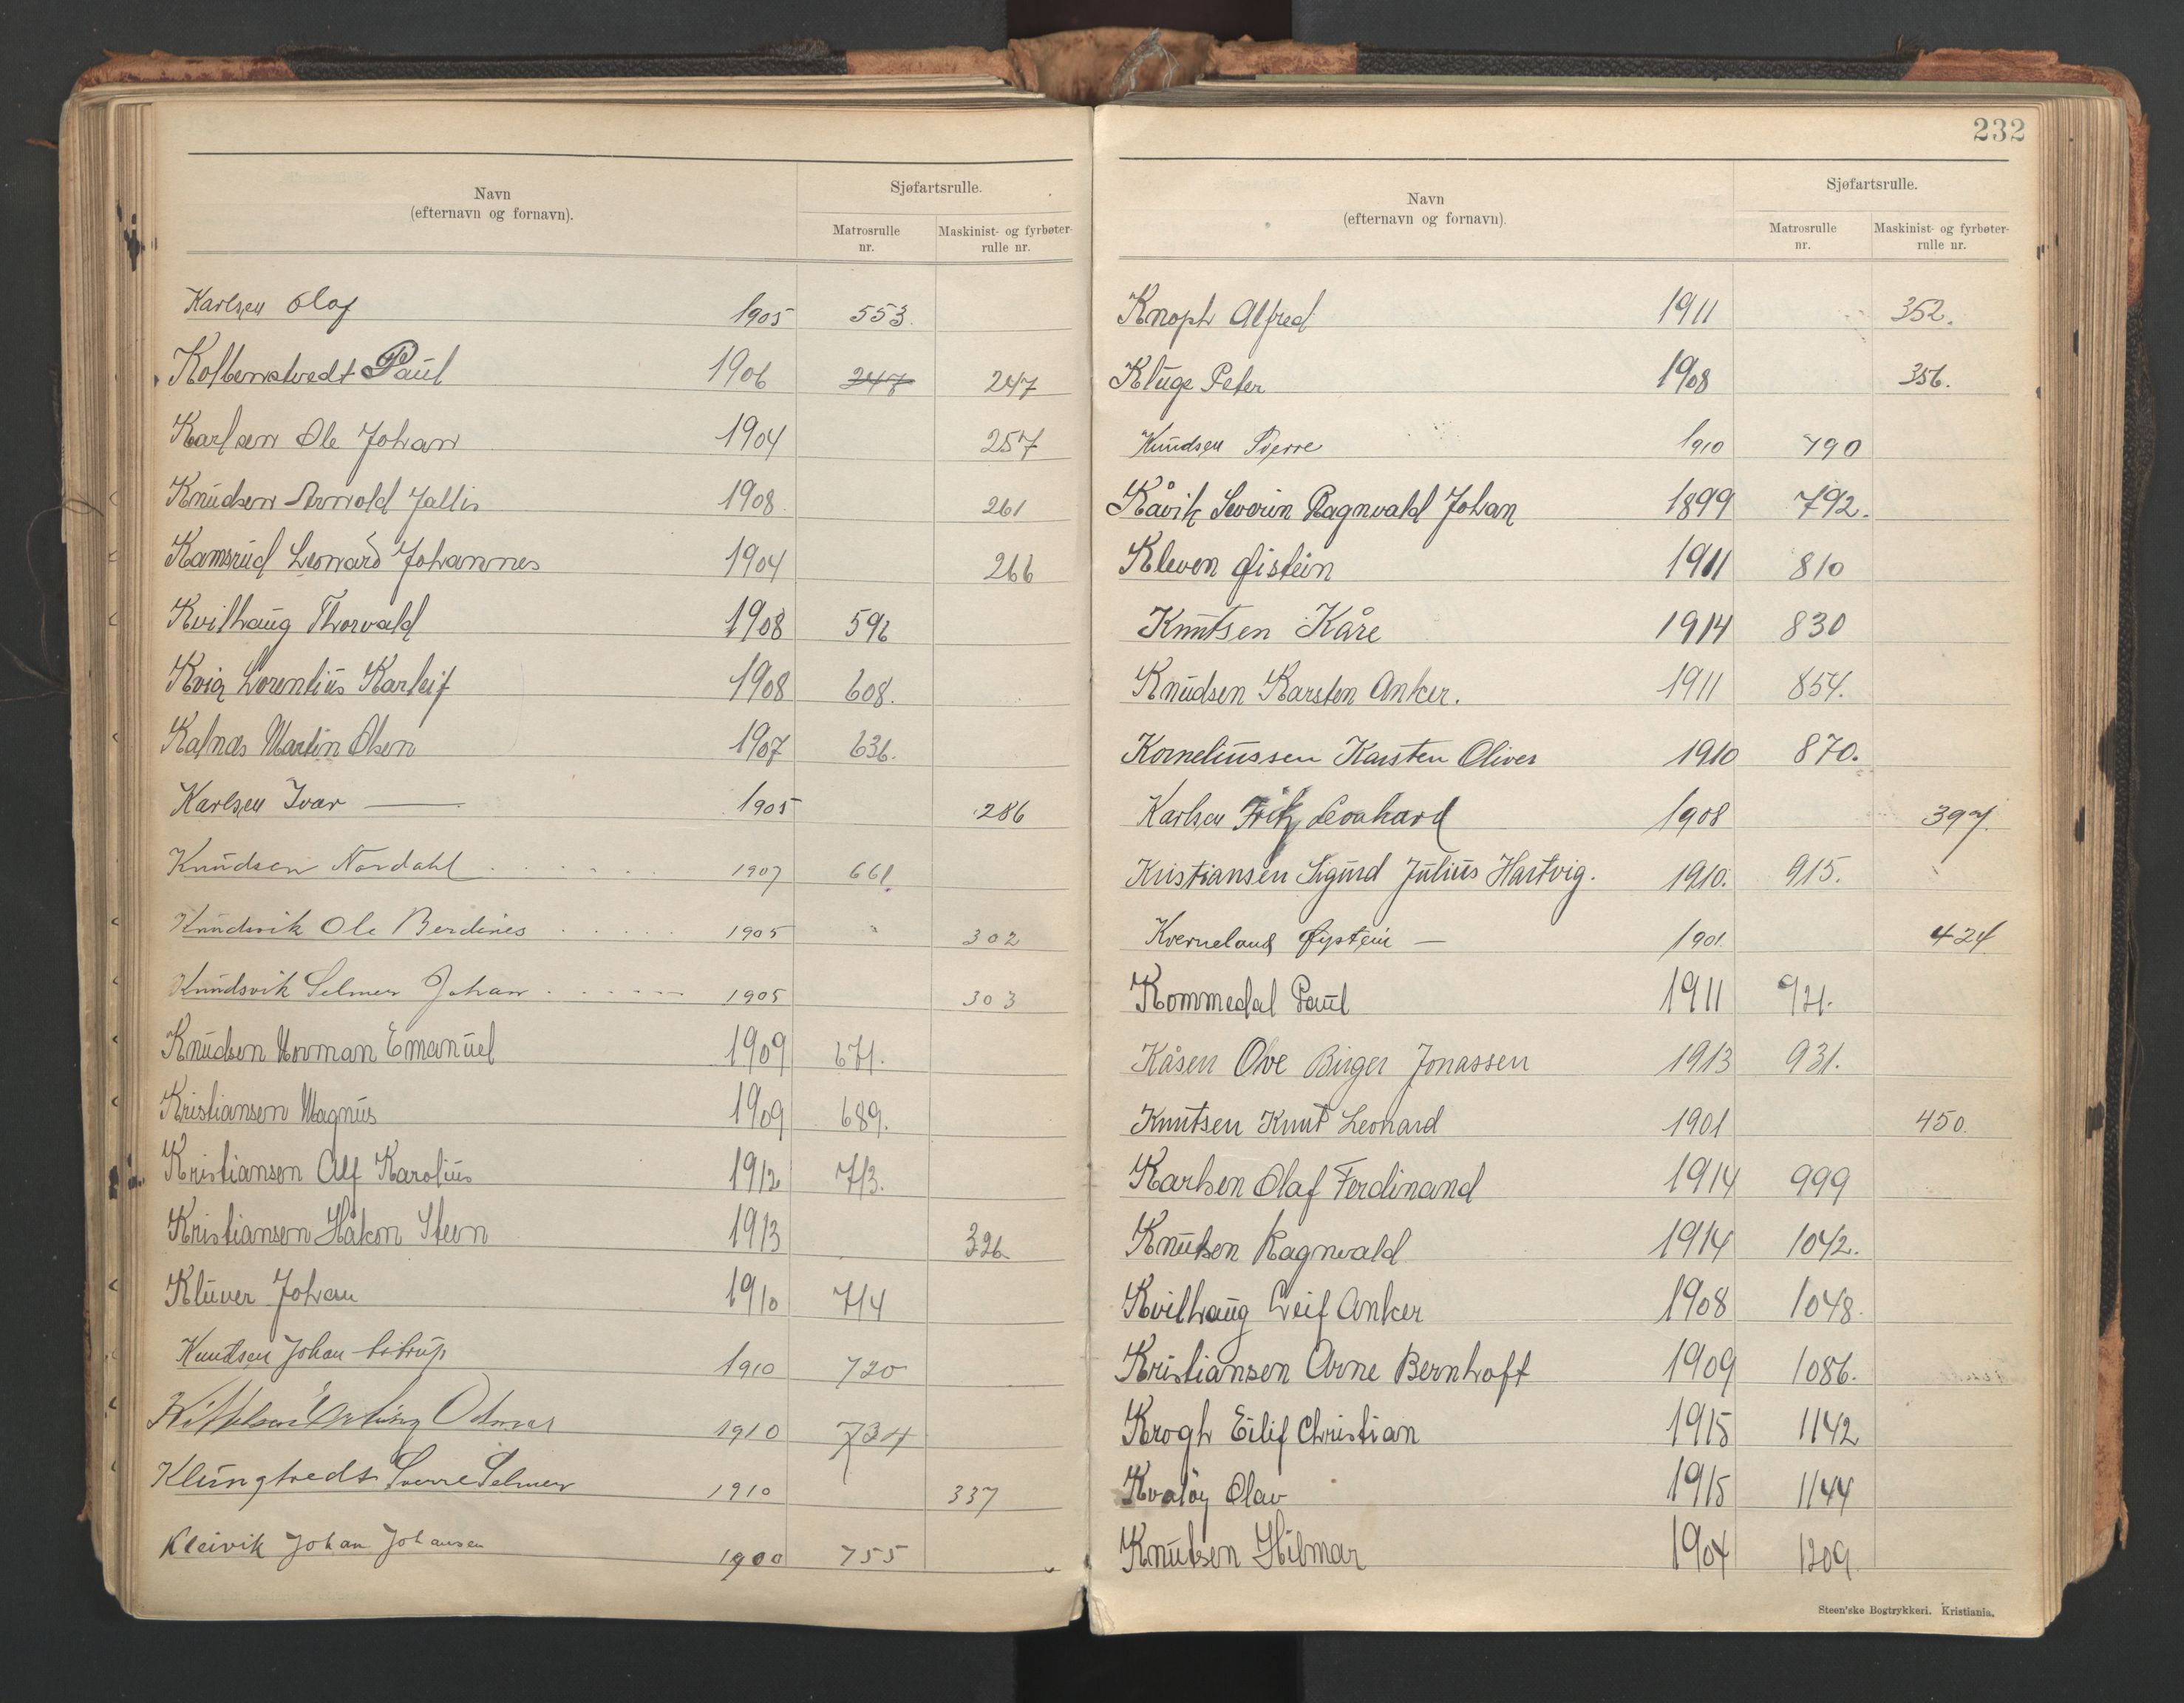 Navn
(efternavn og fornavn).
Sjøfartsrulle.
Matrosrulle
nr.
Maskinist- og fyrbøter-
rulle nr.
Karlsen Olaf 1905 553.
Kolbenstvedt Paul 1906 247 247
Karlsen Ole Johan 1904 257
Knudsen Arnold Jallis 1908 261
Kamsrud Leonard Johannes 1904 266
Kvilhaug Thorvald 1908 596
Kvia Lorentius Karleif 1908 608.
Kalnæs Martin Olsen 1907 636.
Karlsen Ivar — 1905 286
Knudsen Nordahl 1907 661.
Knudsvik Ole Berdines 1905 302
Knudsvik Selmer Johan 1905 303
Knudsen Norman Emanuel 1909 671.
Kristiansen Magnus 1909 689.
Kristiansen Alf Karolius 1912 713.
Kristiansen Håkon Steen 1913 326
Klüver Johan 1910 714
Knudsen Johan 1910 720
Kittelsen Odmar 1910 734
Klungtvedt Sverre Selmer 1910 337
Kleivik Johan Johansen 1900 755
232
Navn
(efternavn og fornavn).
Sjøfartsrulle.
Matrosrulle
nr.
Maskinist- og fyrbøter-
rulle nr.
Knoph Alfred 1911 352.
Kluge Peter 1908 356.
Knudsen Sverre 1910 790
Kåvik Severin Ragnvald Johan 1899 792.
Kleven Øistein 1911 810
Knutsen Kåre 1914 830
Knudsen Karsten Anker. 1911 854.
Korneliussen Karsten Oliver 1910 870.
Karlsen Fritz Leonhard 1908 397.
Kristiansen Sigurd Julius Hartvig. 1910. 915.
Kverneland Øystein — 1901. 424
Kommedal Paul 1911 921.
Kåsen Ove Birger Jonassen 1913 931.
Knutsen Knut Leonard 1901 450.
Karlsen Olaf Ferdinand 1914 999
Knutsen Ragnvald 1914 1042.
Kvilhaug Leif Anker 1908 1048.
Kristiansen Arne Bernhoft 1909 1086.
Krogh Eilif Christian 1915 1142
Kvaløy Olav 1915 1144
Knutsen Hilmar 1904 1209
Steen'ske Bogtrykkeri. Kristiania.